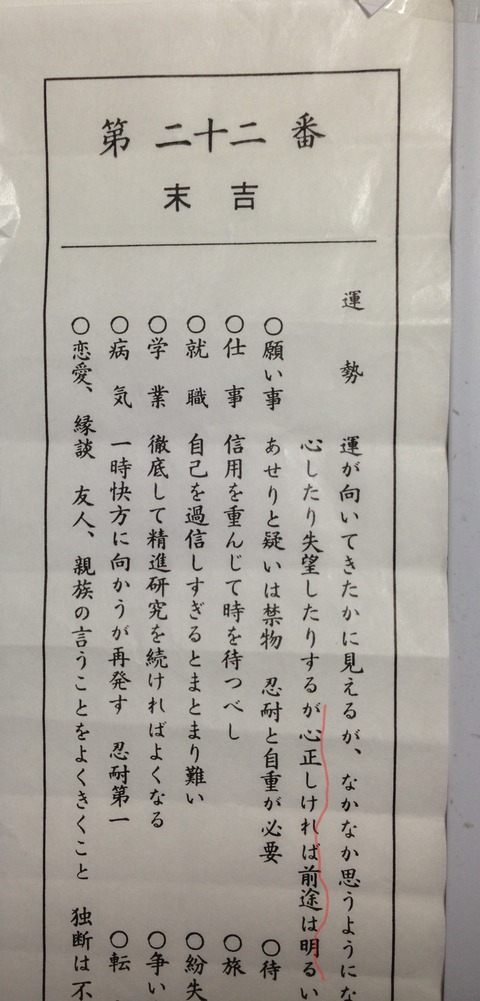 第二十二番
末吉
運勢 運が向いてきたかに見えるが、なかなか思うようにな
心したり失望したりするが心正しければ前途は明るい
○願い事 あせりと疑いは禁物 忍耐と自重が必要 ○待
○仕事 信用を重んじて時を待つべし ○旅
○就職 自己を過信しすぎるとまとまり難い ○紛失
○学業 徹底して精進研究を続ければよくなる ○争い
○病気 一時快方に向かうが再発す 忍耐第一 ○転
○恋愛、縁談 友人、親族の言うことをよくきくこと 独断は不